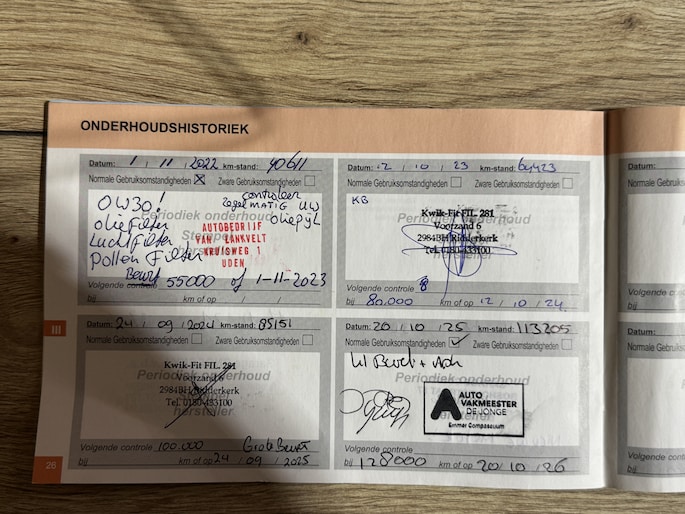 ONDERHOUDSHISTORIEK
Datum: 1 / 11 / 2022 km-stand: 40611
Normale Gebruiksomstandigheden Zware Gebruiksomstandigheden
OW30! controleer
regelmatig uw
oliepijl
oliefilter
Luchtfilter
pollen Filter
Periodiek onderhoud
Stempel
hersteller
AUTOBEDRIJF
VAN LANKVELT
KRUISWEG 1
UDEN
Beurt
Volgende controle 55000 of 1-11-2023
bij km of op
Datum: 12 / 10 / 23 km-stand: 64423
Normale Gebruiksomstandigheden Zware Gebruiksomstandigheden
KB
Periodiek onderhoud
Kwik-Fit FIL 281
Voorzand 6
2984BH Ridderkerk
Tel. 0180-433100
Volgende controle
bij 80.000 km of op 12 / 10 / 24
Datum: 24 / 09 / 2024 km-stand: 85151
Normale Gebruiksomstandigheden Zware Gebruiksomstandigheden
Kwik-Fit FIL 281
Periodiek onderhoud
Voorzand 6
2984BH Ridderkerk
Tel. 0180-433100
hersteller
Volgende controle 100.000 Grote Beurt
bij km of op 24 / 09 / 2025
Datum: 20 / 10 / 25 km-stand: 113205
Normale Gebruiksomstandigheden Zware Gebruiksomstandigheden
Periodiek onderhoud
AUTO
VAKMEESTER
DE JONGE
Emmer Compascuum
Volgende controle
bij 128000 km of op 20 / 10 / 26
III
26
Datum:
Normale G
Volgende co
bij
Datum:
Normale Ge
Volgende c
bij